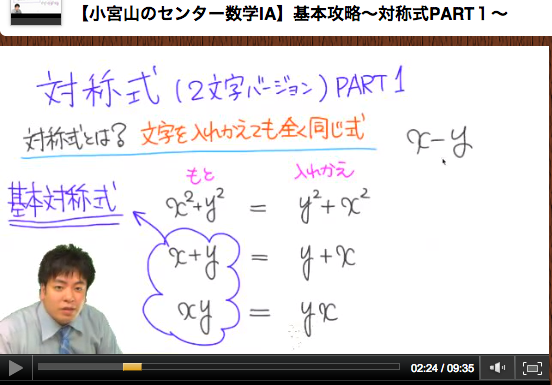 【小宮山のセンター数学IA】基本攻略〜対称式PART１〜
対称式(2文字バージョン)PART1
対称式とは? 文字を入れかえても全く同じ式
x-y
もと 入れかえ
基本対称式
x²+y² = y²+x²
x+y = y+x
xy = yx
02:24 / 09:35